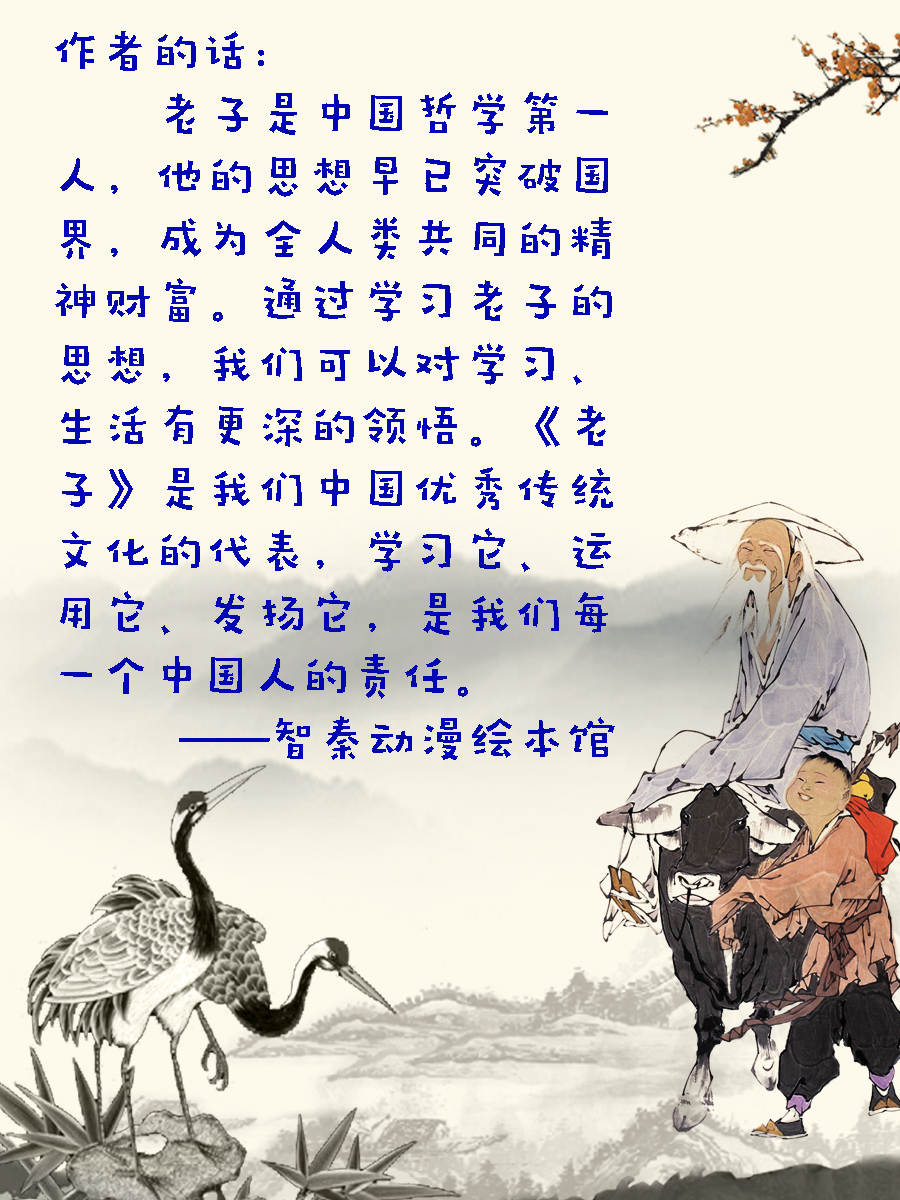 作者的话：
老子是中国哲学第一
人，他的思想早已突破国
界，成为全人类共同的精
神财富。通过学习老子的
思想，我们可以对学习、
生活有更深的领悟。《老
子》是我们中国优秀传统
文化的代表，学习它、运
用它、发扬它，是我们每
一个中国人的责任。
——智秦动漫绘本馆